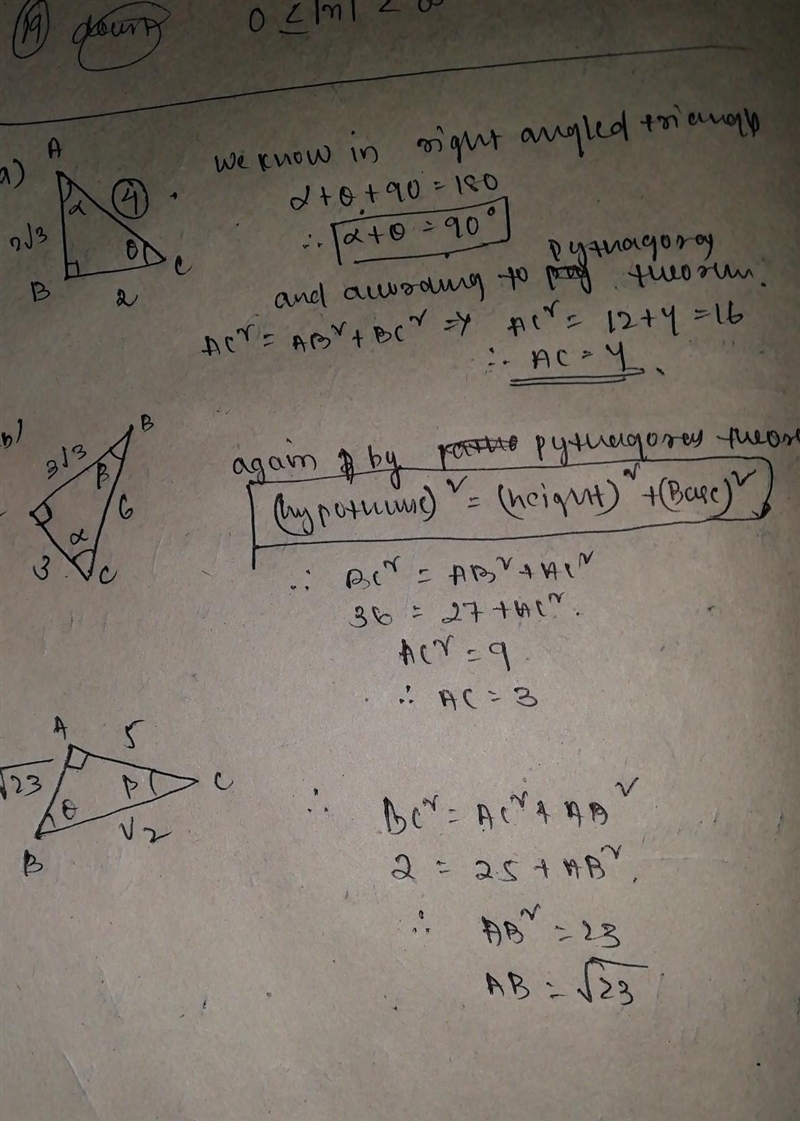 19
0 ≤ |n| < ∞
a)
A
2√3
α
4
θ
B
2
C
We know in right angled triangle
α+θ+90=180
∴ α+θ=90°
pythagoras
and according to theorem.
AC² = AB² + BC² => AC² = 12+4 = 16
∴ AC = 4
b)
B
3√3
β
6
α
3
C
again by pythagores theor
(hypotenuse)² = (height)² + (Base)²
∴ BC² = AB² + AC²
36 = 27 + AC².
AC² = 9
∴ AC = 3
A
5
√23
β
C
θ
√2
B
∴ BC² = AC² + AB²
2 = 25 + AB².
∴ AB² = 23
AB = √23